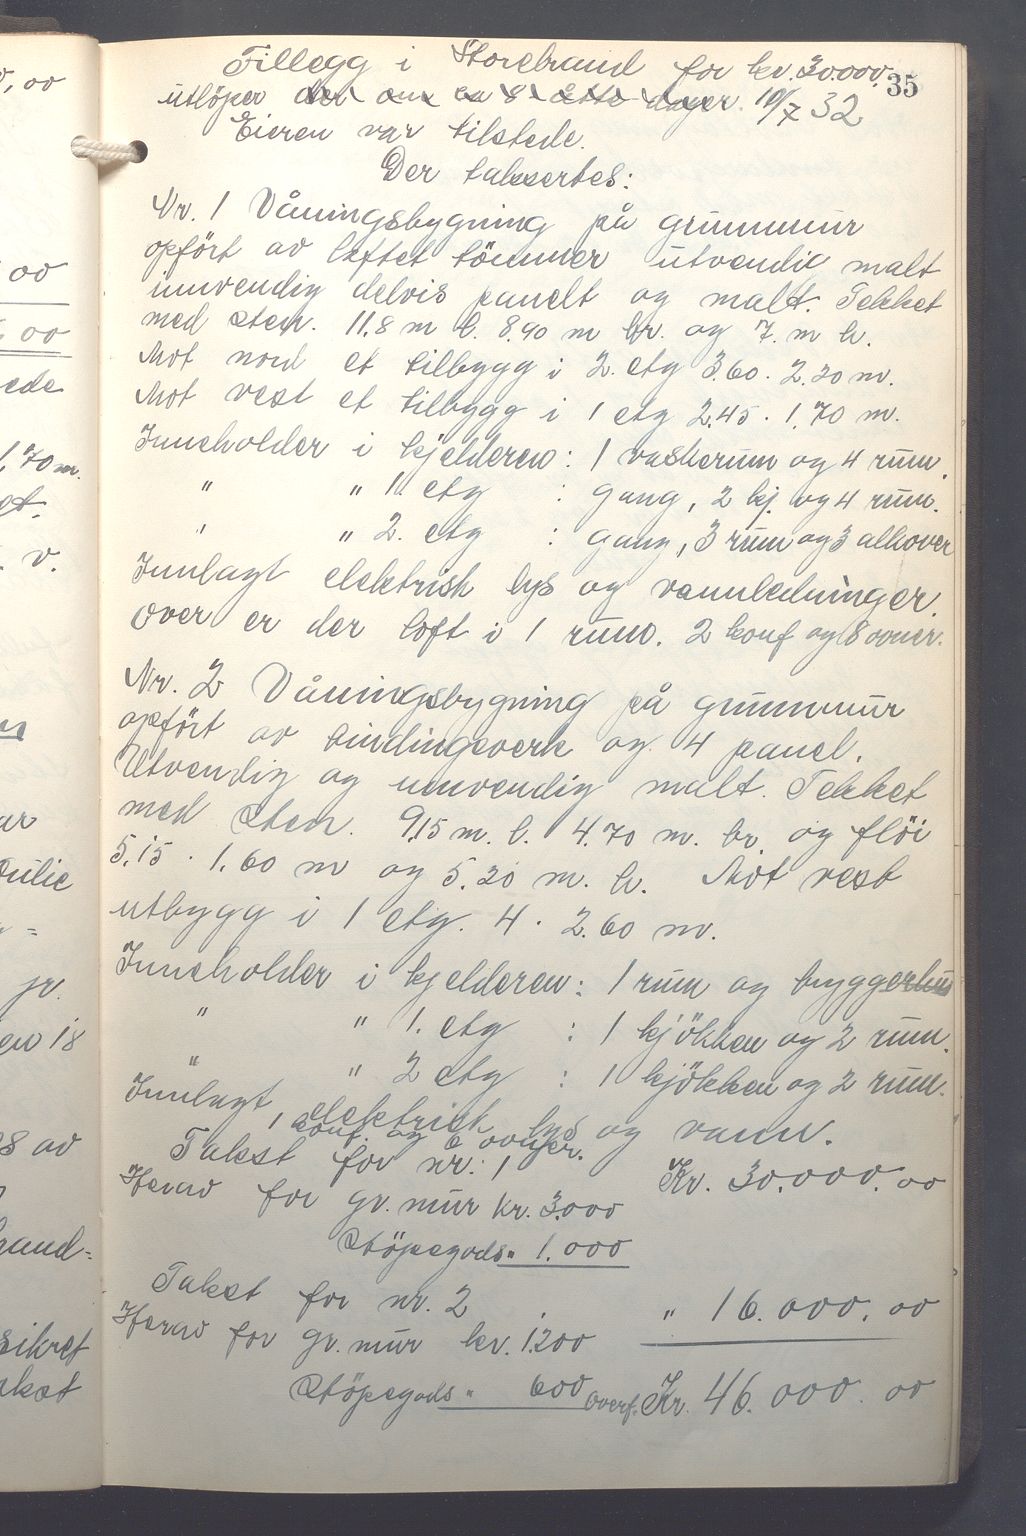 35
Tillegg i Storebrand for kr. 30.000.
utlöper der om ca 8 - åtte dager. 10/7 32
Eieren var tilstede.
Der taksertes:
Nr. 1 Våningsbygning på grunnmur
opfört av laftet tömmer utvendig malt
innvendig delvis panelt og malt. Tekket
med sten. 11,8 m l. 8,90 m br. og 7. m h.
Mot nord et tilbygg i 2. etg 3.60 . 2.20 m.
Mot vest et tilbygg i 1 etg 2.45 . 1.70 m.
Inneholder i kjelderen : 1 vaskerum og 4 rum.
" " 1. etg : gang, 2 kj. og 4 rum.
" " 2. etg : gang, 3 rum og 3 alkover
Innlagt elektrisk lys og vannledninger.
Over er der loft i 1 rum. 2 konf og 8 ovner.
Nr. 2 Våningsbygning på grunnmur
opfört av bindingsverk og 4 panel.
Utvendig og innvendig malt. Tekket
med sten. 9,15 m. l. 4.70 m. br. og flöi
5.15 . 1.60 m og 5.20 m. h. Mot vest
utbygg i 1 etg. 4 . 2.60 m.
Inneholder i kjelderen: 1 rum og bryggerhus
" " 1. etg : 1 kjökken og 2 rum.
" " 2 etg : 1 kjökken og 2 rum.
Innlagt elektrisk lys og vann.
1 konf. og 6 ovner.
Takst for nr. 1 Kr. 30.000.00
Herav for gr. mur kr. 3.000
Stöpegods " 1.000
Takst for nr. 2 " 16.000.00
Herav for gr. mur kr. 1.200
Stöpegods " 600 Overf. Kr. 46.000.00